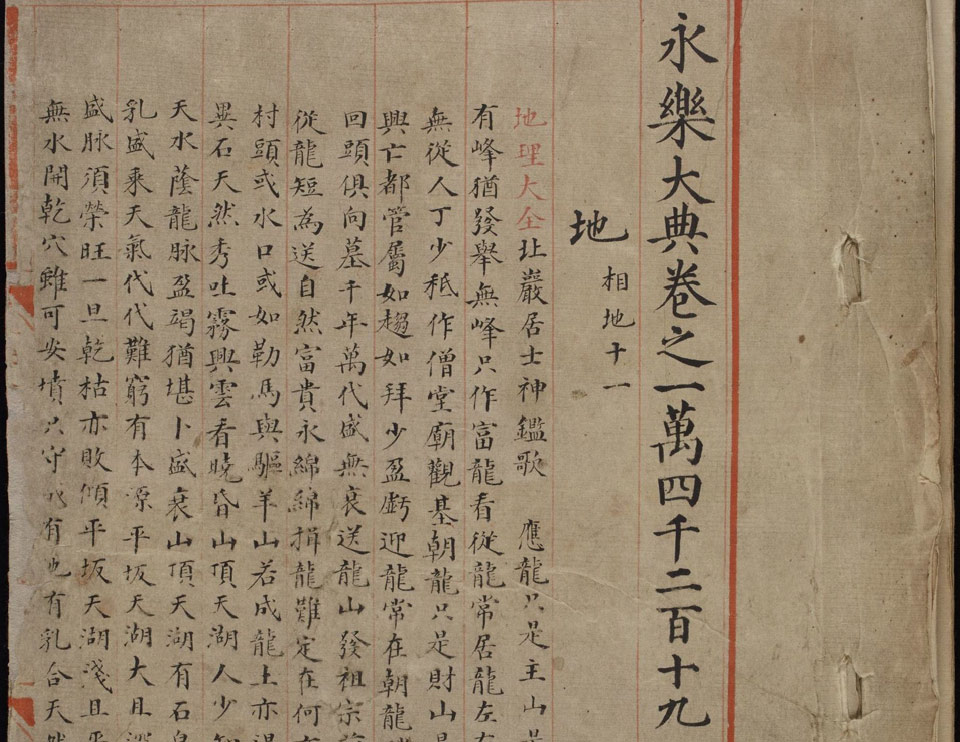 永樂大典卷之一萬四千二百十九
地 相地十一
地理大全玨巖居士神鑑歌 應龍只是主山
有峰猶發舉無峰只作富龍看從龍常居龍左
無從人丁少秪作僧堂廟觀基朝龍只是財山
興亡都管屬如趨如拜少盈虧迎龍常在朝龍
回頭俱向墓千年萬代盛無衰送龍山發祖宗
從龍短為送自然富貴永綿綿揖龍難定在何
村頭或水口或如勒馬與驅羊山若成龍土亦
異石天然秀吐霧興雲看曉昏山頂天湖人少
天水蔭龍脉盈竭猶堪卜盛衰山頂天湖有石
乳盛乘天氣代代難窮有本源平坂天湖大且深
盛脉須榮旺一旦乾枯亦敗傾平坂天湖淺且平
無水開乾穴雖可安墳只守 有也有乳合天然